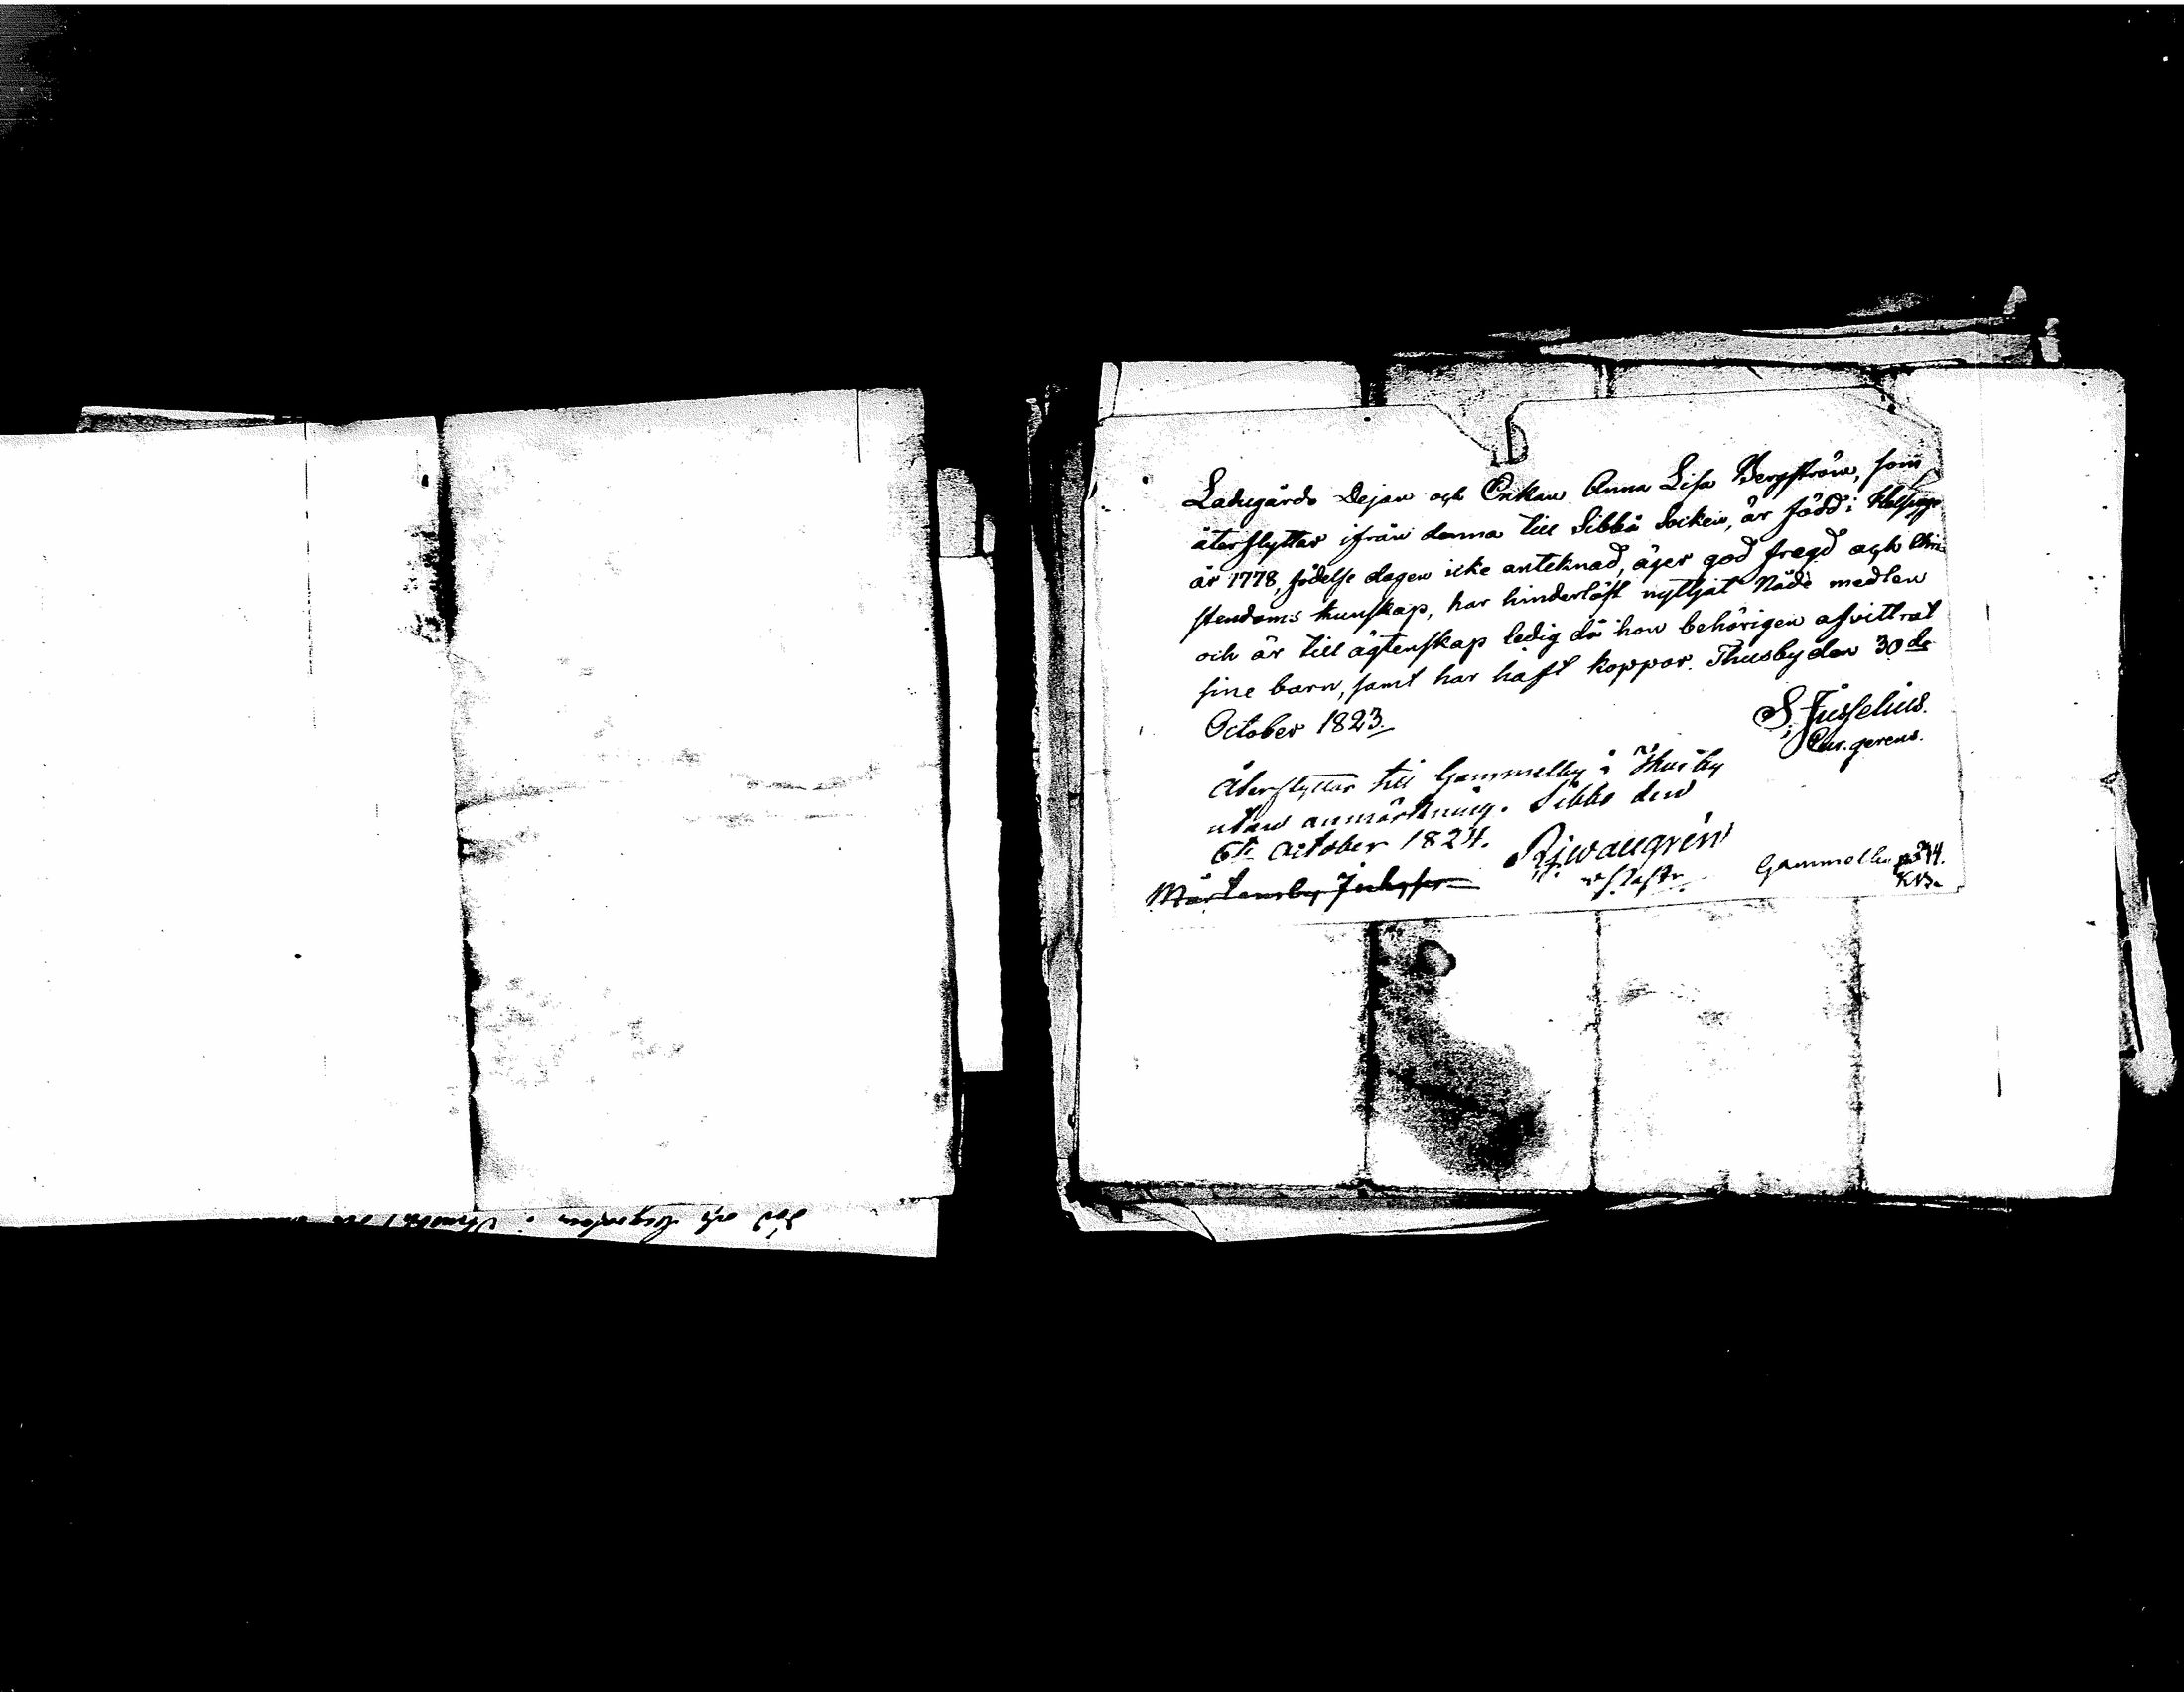 Ladugårds Dejan och Enkan Anna Lisa Bergström, som
återflyttar ifrån denna till Sibbå Socken, är född i Helsingf
år 1778, födelse dagen icke anteknad, äger god fregd och Chri-
stendoms kunskap, har hinderlöst nyttjat Nåde medlen
och är till ägtenskap ledig då hon behörigen afvittrat
sine barn, samt har haft koppor. Thusby den 30de
October 1823.
S. Jusselius.
Cur. gerens.
Återflyttar till Gammelby i Thusby
utan anmärkning. Sibbo den
6te October 1824.
Gammelby p 344.
Mårtensby
död och